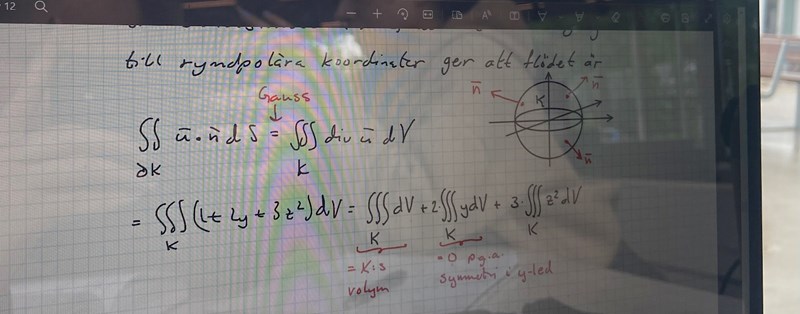 12
till rymdpolära koordinater ger att flödet är
Gauss
∬ ū·n̄ dS = ∭ div ū dV
∂K K
n̄ K n̄
n̄
= ∭ (1 + 2y + 3z²) dV = ∭ dV + 2·∭ y dV + 3·∭ z² dV
K K K K
= K:s
volym
= 0 p.g.a.
symmetri i y-led